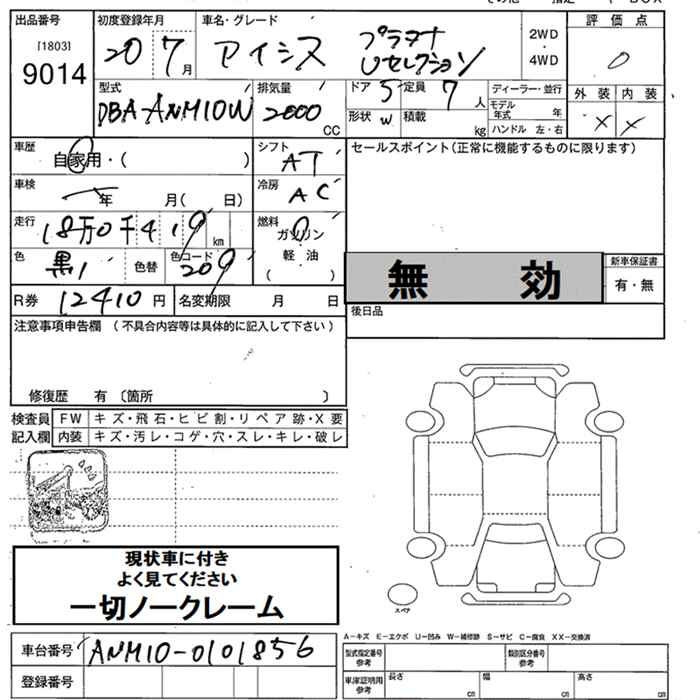 出品番号 初度登録年月 車名・グレード 評価点
[1803] 20 7月 アイシス プラタナ 2WD
9014 Uセレクション ・4WD 0
型式 排気量 ドア 5 定員 7人 ディーラー・並行 外装 内装
DBA-ANM10W 2000CC 形状 W 積載 kg モデル年式 年 × ×
ハンドル 左・右
車歴 自家用・( ) シフト AT セールスポイント(正常に機能するものに限ります)
車検 年 月( 日) 冷房 AC
走行 18万0千419km 燃料 ガソリン
色 黒 色替 色コード 209 軽油
( ) 無効 新車保証書
有・無
R券 12410円 名変期限 月 日 後日品
注意事項申告欄 (不具合内容等は具体的に記入して下さい)
修復歴 有 〔箇所 〕
検査員 FW キズ・飛石・ヒビ割・リペア跡・X要
記入欄 内装 キズ・汚レ・コゲ・穴・スレ・キレ・破レ
現状車に付き
よく見てください
一切ノークレーム
スペア
A-キズ E-エクボ U-凹み W-補修跡 S-サビ C-腐食 XX-交換済
車台番号 ANM10-0101856 型式指定番号 参考 類別区分番号 参考
登録番号 車庫証明用 参考 長さ cm 幅 cm 高さ cm